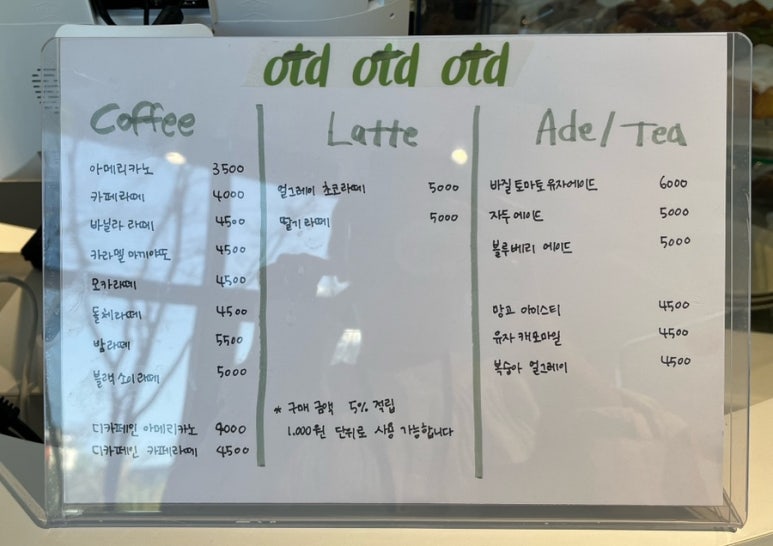 otd otd otd
Coffee
아메리카노 3500
카페라떼 4000
바닐라 라떼 4500
카라멜 마끼야또 4500
모카라떼 4500
돌체라떼 4500
밤라떼 5500
블랙 소이라떼 5000
디카페인 아메리카노 4000
디카페인 카페라떼 4500
Latte
얼그레이 초코라떼 5000
딸기라떼 5000
* 구매 금액 5% 적립
1,000원 단위로 사용 가능합니다
Ade/Tea
바질토마토유자에이드 6000
자두에이드 5000
블루베리 에이드 5000
망고 아이스티 4500
유자 캐모마일 4500
복숭아 얼그레이 4500